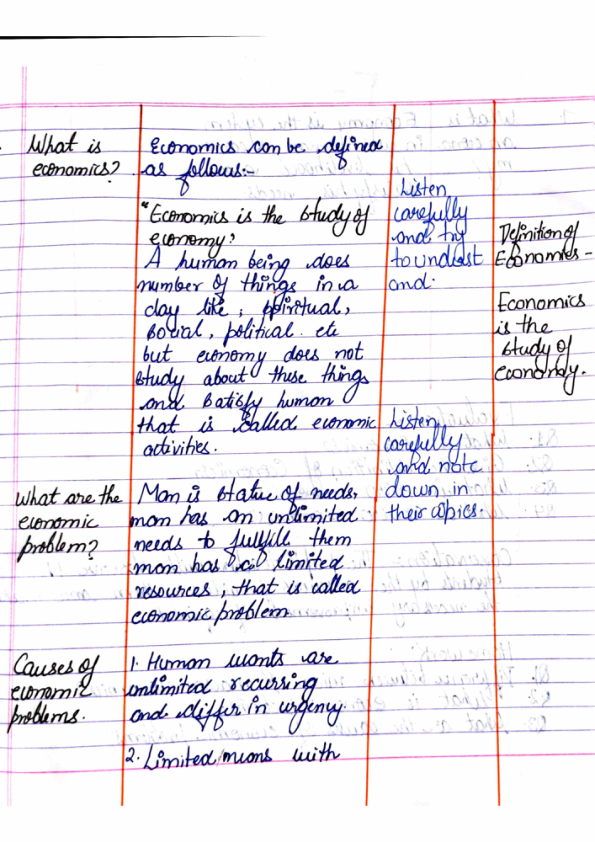 What is
economics?
Economics can be defined
as follows:-
"Economics is the study of
economy"
A human being does
number of things in a
day like, spiritual,
social, political etc
but economy does not
study about these things
and satisfy human
that is called economic
activities.
Listen
carefully
and try
to undast
and.
Definition of
Economics -
Economics
is the
study of
economy.
Listen
carefully
and note
down in
their copics.
What are the
economic
problem?
Man is statue of needs,
man has an unlimited
needs to fulfill them
man has limited
resources, that is called
economic problem
Causes of
economic
problems.
1. Human wants are
unlimited recurring
and differ in urgency.
2. Limited means with